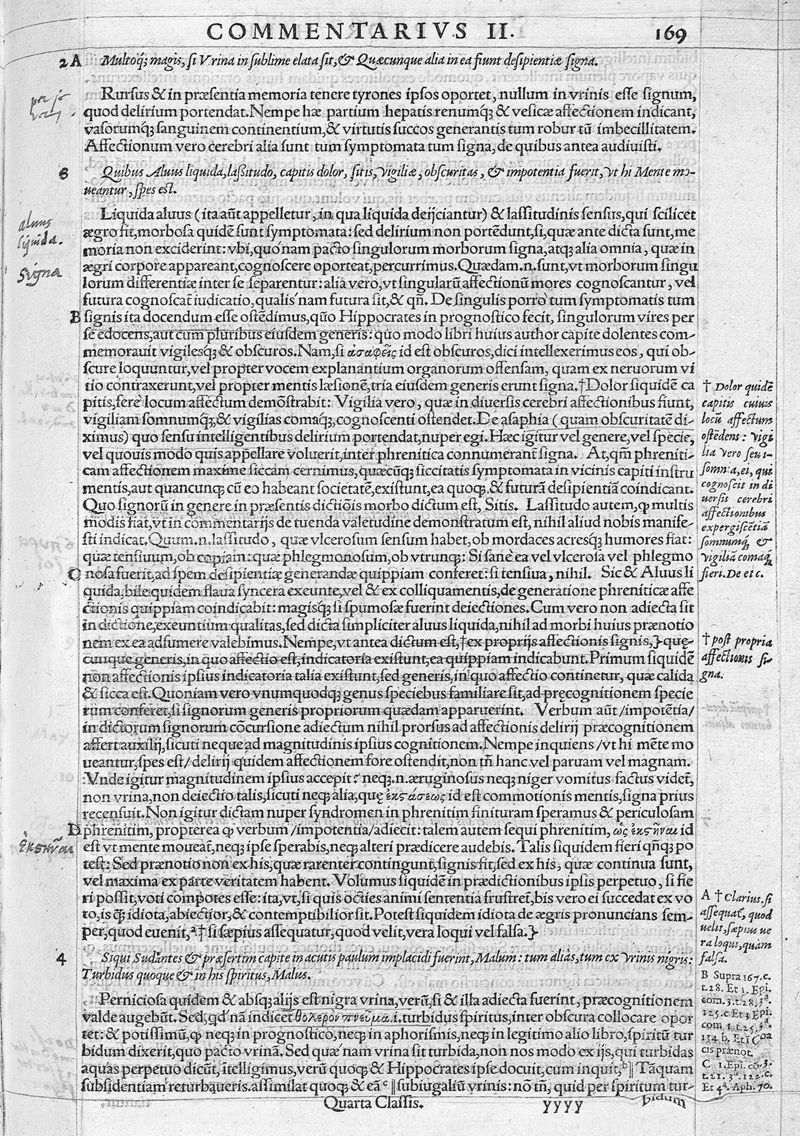 COMMENTARIVS II. 169
2 A Multoq; magis, si Vrina in sublime elata sit, & Quæcunque alia in ea fiunt desipientiæ signa.
Rursus & in præsentia memoria tenere tyrones ipsos oportet, nullum in vrinis esse signum,
quod delirium portendat. Nempe hæ partium hepatis renumq; & vesicæ affectionem indicant,
vasorumq; sanguinem continentium, & virtutis succos generantis tum robur tũ imbecillitatem.
Affectionum vero cerebri alia sunt tum symptomata tum signa, de quibus antea audiuisti.
Quibus Aluus liquida, lassitudo, capitis dolor, sitis, vigiliæ, obscuritas, & impotentia fuerit, vt hi Mente mo-
ueantur, spes est.
Liquida aluus (ita aũt appelletur, in qua liquida deijciantur) & lassitudinis sensus, qui scilicet
ægro fit, morbosa quidẽ sunt symptomata: sed delirium non portẽdunt, si, quæ ante dicta sunt, me
moria non exciderint: vbi, quo nam pacto singulorum morborum signa, atq; alia omnia, quæ in
ægri corpore appareant, cognoscere oporteat, percurrimus. Quædam .n. sunt, vt morborum singu
lorum differentiæ inter se separentur: alia vero, vt singularũ affectionũ mores cognoscantur, vel
futura cognoscat̃ iudicatio, qualis nam futura sit, & qñ. De singulis porro tum symptomatis tum
B signis ita docendum esse ostẽdimus, quõ Hippocrates in prognostico fecit, singulorum vires per
se edocens, aut cum pluribus eiusdem generis: quo modo libri huius author capite dolentes com-
memorauit vigilesq; & obscuros. Nam, si ἀσαφεῖς id est obscuros, dici intellexerimus eos, qui ob-
scure loquuntur, vel propter vocem explanantium organorum offensam, quam ex neruorum vi
tio contraxerunt, vel propter mentis læsionẽ, tria eiusdem generis erunt signa. † Dolor siquidẽ ca
pitis, fere locum affectum demõstrabit: Vigilia vero, quæ in diuersis cerebri affectionibus fiunt,
vigiliam somnumq;, & vigilias comaq;, cognoscenti ostendet. De asaphia (quam obscuritatẽ di-
ximus) quo sensu intelligentibus delirium portendat, nuper egi. Hæc igitur vel genere, vel specie,
vel quouis modo quis appellare voluerit, inter phrenitica connumerant̃ signa. At, qm̃ phreniti-
cam affectionem maxime siccam cernimus, quæcũq; siccitatis symptomata in vicinis capiti instru
mentis, aut quancunq; cũ eo habeant societatẽ, existunt, ea quoq; & futurã desipientiã coindicant.
Quo signorũ in genere in præsentis dictiõis morbo dictum est, Sitis. Lassitudo autem, ꝙ multis
modis fiat, vt in commentarijs de tuenda valetudine demonstratum est, nihil aliud nobis manife-
sti indicat. Quum .n. lassitudo, quæ vlcerosum sensum habet, ob mordaces acresq; humores fiat:
quæ tensiuum, ob copiam: quæ phlegmonosum, ob vtrunq;: Si sane ea vel vlcerosa vel phlegmo
C nosa fuerit, ad spem desipientiæ generandæ quippiam conferet: si tensiua, nihil. Sic & Aluus li
quida, bile quidem flaua syncera excunte, vel & ex colliquamentis, de generatione phreniticæ affe
ctionis quippiam coindicabit: magisq; si spumosæ fuerint deiectiones. Cum vero non adiecta sit
in dictione, exeuntium qualitas, sed dicta simpliciter aluus liquida, nihil ad morbi huius prænotio
nem ex ea adsumere valebimus. Nempe, vt antea dictum est, † ex proprijs affectionis signis, } quę-
cunque generis, in quo affectio est, indicatoria existunt, ea quippiam indicabunt. Primum siquidẽ
non affectionis ipsius indicatoria talia existunt, sed generis, in quo affectio continetur, quæ calida
& sicca est. Quoniam vero vnumquodq; genus speciebus familiare sit, ad præcognitionem specie
rum conferet, si signorum generis propriorum quædam apparuerint. Verbum aũt / impotẽtia /
in dictorum signorum cõcursione adiectum nihil prorsus ad affectionis delirij præcognitionem
affert auxilij, sicuti neque ad magnitudinis ipsius cognitionem. Nempe inquiens / vt hi mẽte mo
ueantur, spes est / delirij quidem affectionem fore ostendit, non tñ hanc vel paruam vel magnam.
Vnde igitur magnitudinem ipsius accepit? neq; .n. æruginosus neq; niger vomitus factus videt̃,
non vrina, non deiectio talis, sicuti neq; alia, quę ἐκστάσεως id est commotionis mentis, signa prius
recensuit. Non igitur dictam nuper syndromen in phrenitim finituram speramus & periculosam
D phrenitim, propterea ꝙ verbum / impotentia / adiecit: talem autem sequi phrenitim, ὡς ἐκστῆναι id
est vt mente moueat̃, neq; ipse sperabis, neq; alteri prædicere audebis. Talis siquidem fieri qñq; po
test: Sed prænotio non ex his, quæ rarenter contingunt, signis fit, sed ex his, quæ continua sunt,
vel maxima ex parte veritatem habent. Volumus siquidẽ in prædictionibus ipsis perpetuo, si fie
ri possit, voti compotes esse: ita, vt, si quis octies animi sententia frustret̃, bis vero ei succedat ex vo
to, is q̃; idiota, abiectior, & contemptibilior sit. Potest siquidem idiota de ægris pronuncians sem-
per, quod euenit, ᴬ† si sæpius assequatur, quod velit, vera loqui vel falsa. }
4 Siqui Sudantes & præsertim capite in acutis paulum implacidi fuerint, Malum: tum aliàs, tum ex Vrinis nigris:
Turbidus quoque & in his spiritus, Malus.
Perniciosa quidem & absq; alijs est nigra vrina, verũ, si & illa adiecta fuerint, præcognitionem
valde augebũt. Sed, qd nã indicet θολερὸν πνεῦμα .i. turbidus spiritus, inter obscura collocare opor
tet: & potissimũ, ꝙ neq; in prognostico, neq; in aphorismis, neq; in legitimo alio libro, spiritũ tur
bidum dixerit, quo pacto vrinã. Sed quæ nam vrina sit turbida, non nos modo ex ijs, qui turbidas
aquas perpetuo dicũt, ĩtelligimus, verũ quoq; & Hippocrates ipse docuit, cum inquit, ᵇ‖ Tãquam
subsidentiam returbaueris. assimilat quoq; & eã ᶜ‖ subiugaliũ vrinis: nõ tñ, quid per spiritum tur-
Quarta Classis. yyyy bidum
aluus
liquida.
Signa
† Dolor quidẽ
capitis cuius
locũ affectum
ostẽdens: Vigi
lia vero seu i-
somnia, ei, qui
cognoscit in di
uersis cerebri
affectionibus
expergiscẽtiã
somnumq; &
vigiliã comaq;
fieri. De et c.
† post propria
affectionis si-
gna.
A † Clarius, si
assequat̃, quod
uelit, sæpius ue
ra loqui, quam
falsa.
B Supra 167. c.
t. 28. Et 3. Epi.
com. 3. t. 28, 3ª.
125. c Et 3 Epi.
com. 1. t. 25, 3ª.
134. b. Et i Coa
cis prænot.
C 1. Epi. co. 3.
t. 21. 3ª. 122. c.
Et 4ª. Aph. 70.